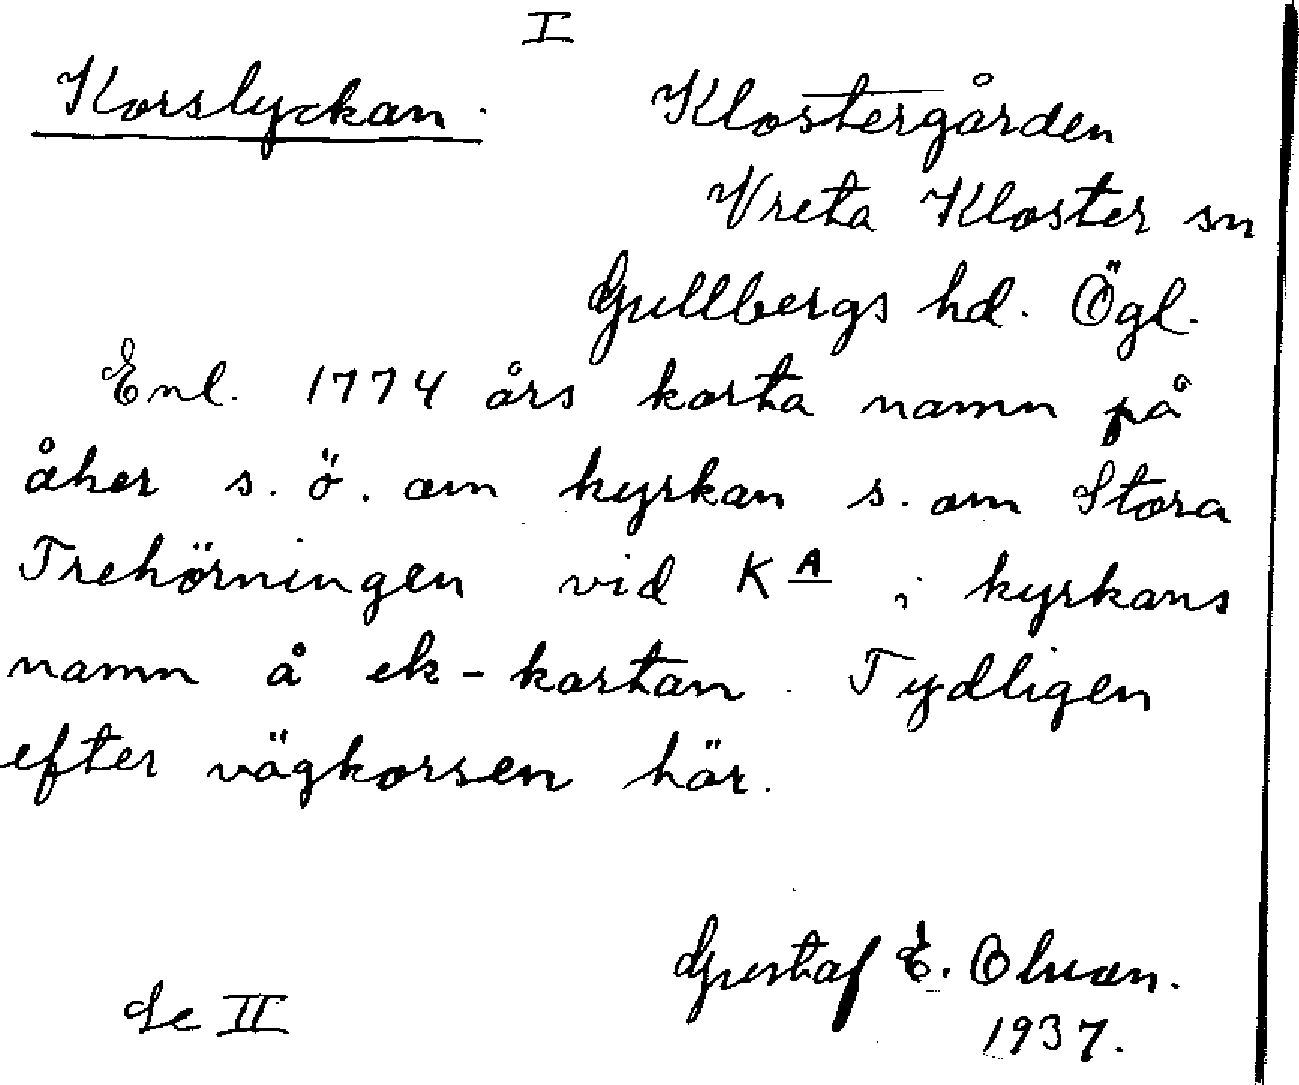 I
Korslyckan. Klostergården
Vreta Kloster sn
Gullbergs hd. Ögl.
Enl. 1774 års karta namn på
åker s. ö. om kyrkan s. om Stora
Trehörningen vid K A i kyrkans
namn å ek-kartan. Tydligen
efter vägkorsen här.
Gustaf E. Olson.
Se II 1937.